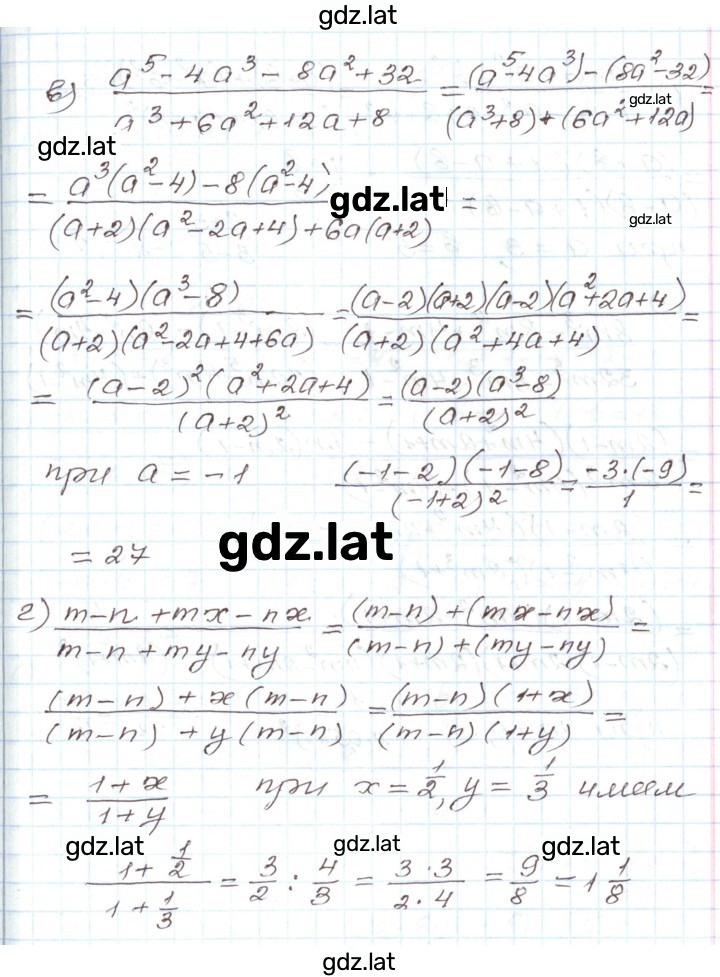 gdz.lat
в) (a⁵ - 4a³ - 8a² + 32)/(a³ + 6a² + 12a + 8) = ((a⁵ - 4a³) - (8a² - 32))/((a³ + 8) + (6a² + 12a)) =
gdz.lat
gdz.lat
= (a³(a² - 4) - 8(a² - 4))/((a + 2)(a² - 2a + 4) + 6a(a + 2)) =
gdz.lat
gdz.lat
= ((a² - 4)(a³ - 8))/((a + 2)(a² - 2a + 4 + 6a)) = ((a - 2)(a + 2)(a - 2)(a² + 2a + 4))/((a + 2)(a² + 4a + 4)) =
= ((a - 2)²(a² + 2a + 4))/((a + 2)²) = ((a - 2)(a³ - 8))/((a + 2)²)
при a = -1 ((-1 - 2)(-1 - 8))/((-1 + 2)²) = (-3·(-9))/1 =
= 27
gdz.lat
г) (m - n + mx - nx)/(m - n + my - ny) = ((m - n) + (mx - nx))/((m - n) + (my - ny)) =
((m - n) + x(m - n))/((m - n) + y(m - n)) = ((m - n)(1 + x))/((m - n)(1 + y)) =
= (1 + x)/(1 + y) при x = 1/2, y = 1/3 имеем
gdz.lat
gdz.lat
gdz.lat
(1 + 1/2)/(1 + 1/3) = 3/2 : 4/3 = (3·3)/(2·4) = 9/8 = 1 1/8
gdz.lat